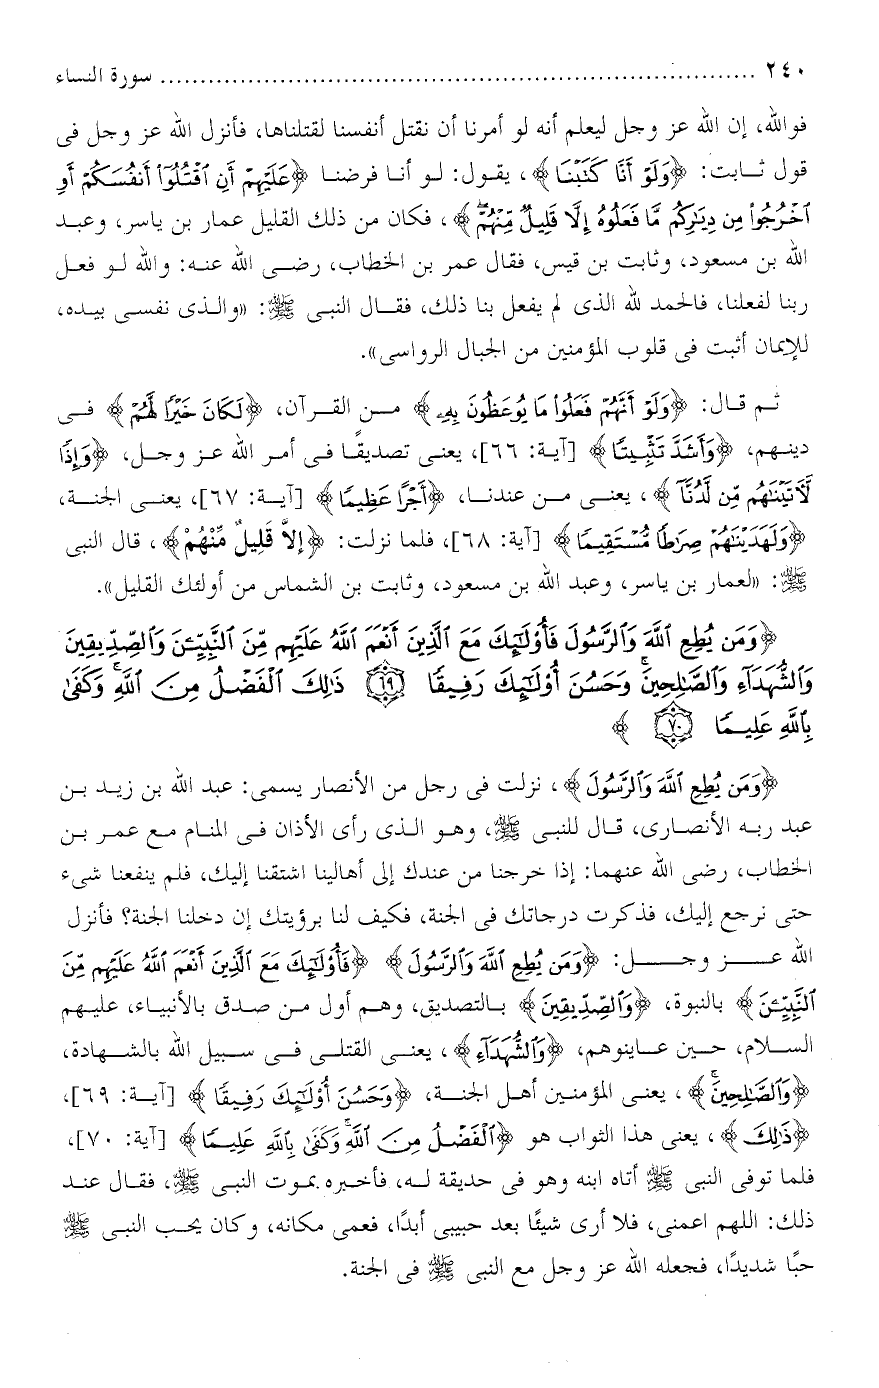 ٢٤٠ ........................................................................... سورة النساء
فوالله، إن الله عز وجل ليعلم أنه لو أمرنا أن نقتل أنفسنا لقتلناها، فأنزل الله عز وجل فى
قول ثابت: ﴿وَلَوْ أَنَّا كَتَبْنَا﴾، يقول: لو أنا فرضنا ﴿عَلَيْهِمْ أَنِ ٱقْتُلُوٓا۟ أَنفُسَكُمْ أَوِ
ٱخْرُجُوا۟ مِن دِيَـٰرِكُم مَّا فَعَلُوهُ إِلَّا قَلِيلٌ مِّنْهُمْ ۖ﴾، فكان من ذلك القليل عمار بن ياسر، وعبد
الله بن مسعود، وثابت بن قيس، فقال عمر بن الخطاب، رضى الله عنه: والله لو فعل
ربنا لفعلنا، فالحمد لله الذى لم يفعل بنا ذلك، فقال النبى ﷺ: «والذى نفسى بيده،
للإيمان أثبت فى قلوب المؤمنين من الجبال الرواسى».
ثم قال: ﴿وَلَوْ أَنَّهُمْ فَعَلُوا۟ مَا يُوعَظُونَ بِهِۦ﴾ من القرآن، ﴿لَكَانَ خَيْرًا لَّهُمْ﴾ فى
دينهم، ﴿وَأَشَدَّ تَثْبِيتًا﴾ [آية: ٦٦]، يعنى تصديقًا فى أمر الله عز وجل، ﴿وَإِذًا
لَّـَٔاتَيْنَـٰهُم مِّن لَّدُنَّآ﴾، يعنى من عندنا، ﴿أَجْرًا عَظِيمًا﴾ [آية: ٦٧]، يعنى الجنة،
﴿وَلَهَدَيْنَـٰهُمْ صِرَٰطًا مُّسْتَقِيمًا﴾ [آية: ٦٨]، فلما نزلت: ﴿إِلاَّ قَلِيلٌ مِّنْهُمْ﴾، قال النبى
ﷺ: «لعمار بن ياسر، وعبد الله بن مسعود، وثابت بن الشماس من أولئك القليل».
﴿وَمَن يُطِعِ ٱللَّهَ وَٱلرَّسُولَ فَأُو۟لَـٰٓئِكَ مَعَ ٱلَّذِينَ أَنْعَمَ ٱللَّهُ عَلَيْهِم مِّنَ ٱلنَّبِيِّـۧنَ وَٱلصِّدِّيقِينَ
وَٱلشُّهَدَآءِ وَٱلصَّـٰلِحِينَ ۚ وَحَسُنَ أُو۟لَـٰٓئِكَ رَفِيقًا ٦٩ ذَٰلِكَ ٱلْفَضْلُ مِنَ ٱللَّهِ ۚ وَكَفَىٰ
بِٱللَّهِ عَلِيمًا ٧٠ ﴾
﴿وَمَن يُطِعِ ٱللَّهَ وَٱلرَّسُولَ﴾، نزلت فى رجل من الأنصار يسمى: عبد الله بن زيد بن
عبد ربه الأنصارى، قال للنبى ﷺ، وهو الذى رأى الأذان فى المنام مع عمر بن
الخطاب، رضى الله عنهما: إذا خرجنا من عندك إلى أهالينا اشتقنا إليك، فلم ينفعنا شىء
حتى نرجع إليك، فذكرت درجاتك فى الجنة، فكيف لنا برؤيتك إن دخلنا الجنة؟ فأنزل
الله عز وجل: ﴿وَمَن يُطِعِ ٱللَّهَ وَٱلرَّسُولَ﴾ ﴿فَأُو۟لَـٰٓئِكَ مَعَ ٱلَّذِينَ أَنْعَمَ ٱللَّهُ عَلَيْهِم مِّنَ
ٱلنَّبِيِّـۧنَ﴾ بالنبوة، ﴿وَٱلصِّدِّيقِينَ﴾ بالتصديق، وهم أول من صدق بالأنبياء، عليهم
السلام، حين عاينوهم، ﴿وَٱلشُّهَدَآءِ﴾، يعنى القتلى فى سبيل الله بالشهادة،
﴿وَٱلصَّـٰلِحِينَ ۚ﴾، يعنى المؤمنين أهل الجنة، ﴿وَحَسُنَ أُو۟لَـٰٓئِكَ رَفِيقًا﴾ [آية: ٦٩]،
﴿ذَٰلِكَ﴾، يعنى هذا الثواب هو ﴿ٱلْفَضْلُ مِنَ ٱللَّهِ ۚ وَكَفَىٰ بِٱللَّهِ عَلِيمًا﴾ [آية: ٧٠]،
فلما توفى النبى ﷺ أتاه ابنه وهو فى حديقة له، فأخبره بموت النبى ﷺ، فقال عند
ذلك: اللهم اعمنى، فلا أرى شيئًا بعد حبيبى أبدًا، فعمى مكانه، وكان يحب النبى ﷺ
حبًا شديدًا، فجعله الله عز وجل مع النبى ﷺ فى الجنة.